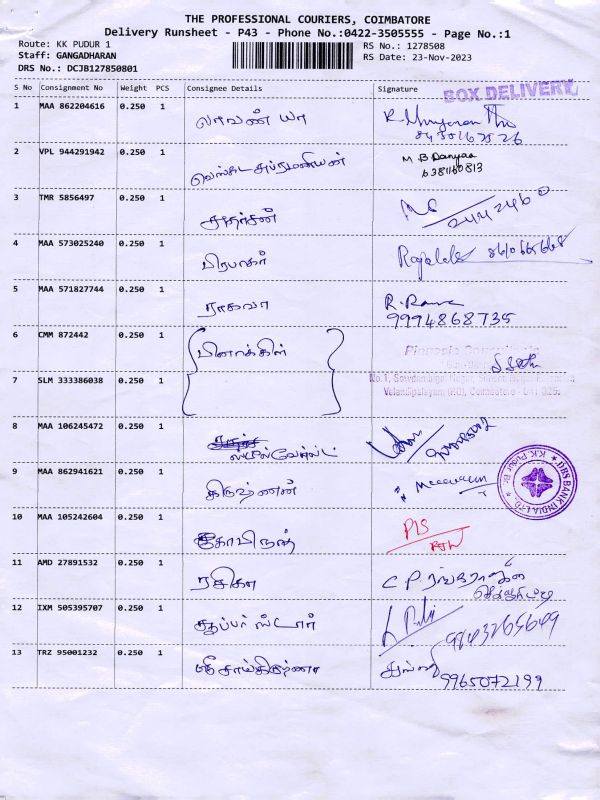 THE PROFESSIONAL COURIERS, COIMBATORE
Delivery Runsheet - P43 - Phone No.:0422-3505555 - Page No.:1
Route: KK PUDUR 1
RS No.: 1278508
Staff: GANGADHARAN
RS Date: 23-Nov-2023
DRS No.: DCJB127850801
S No Consignment No Weight PCS Consignee Details Signature
BOX DELIVERY
1 MAA 862204616 0.250 1 லாவண்யா
2 VPL 944291942 0.250 1 வெங்கடசுப்ரமணியன் M B Danyaa
6381160813
3 TMR 5856497 0.250 1 சுதர்சன்
9442460
4 MAA 573025240 0.250 1 பிரபாகர் 8610665668
5 MAA 571827744 0.250 1 ராகவா R. Rama
9994868735
6 CMM 872442 0.250 1 பினாக்கிள்
7 SLM 333386038 0.250 1
Velandipalayam (PO), Coimbatore - 641 025.
8 MAA 106245472 0.250 1
9 MAA 862941621 0.250 1 கிருஷ்ணன்
DBS BANK INDIA LTD.
K.K. Pudur Br.
10 MAA 105242604 0.250 1 கோவிந்தன்
11 AMD 27891532 0.250 1 ரசிகா C.P.
12 IXM 505395707 0.250 1 சூப்பர் ஸ்டார்
9843265649
13 TRZ 95001232 0.250 1
9965072199